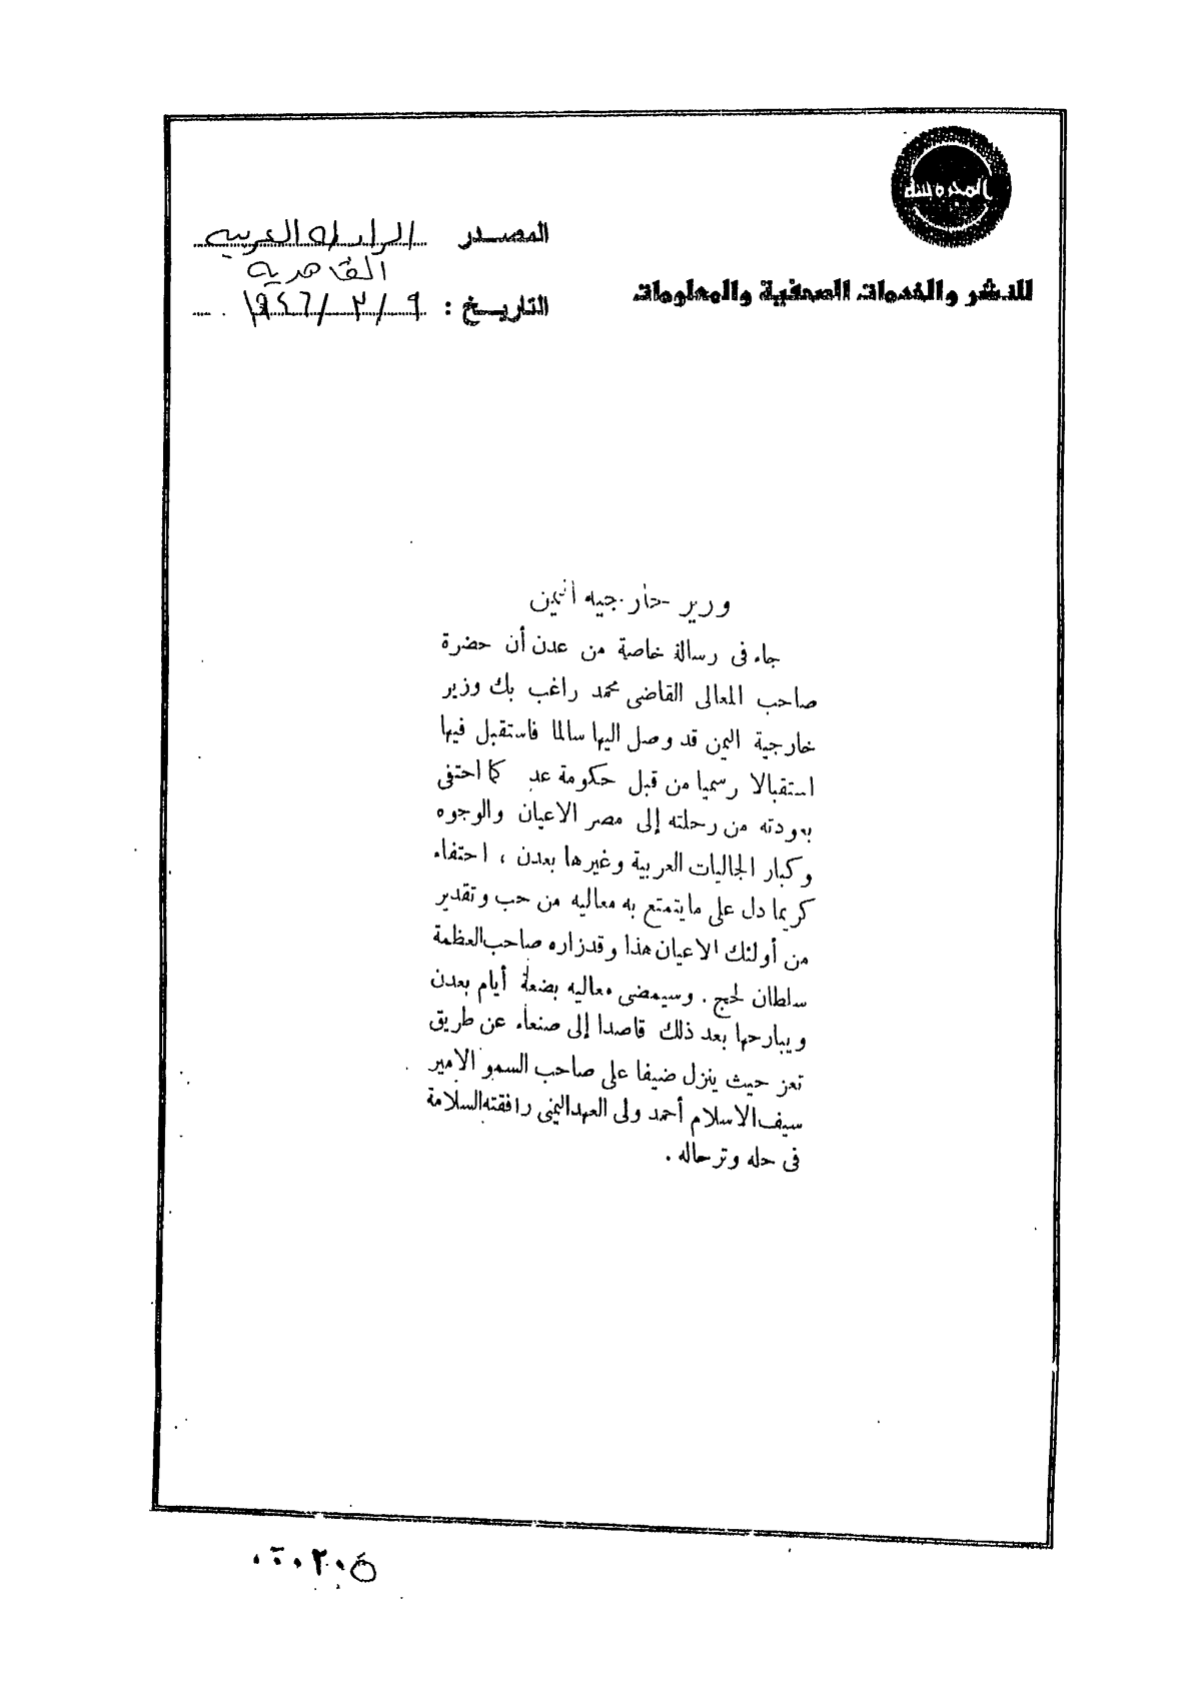 المحروسة
للنشر والخدمات الصحفية والمعلومات
المصدر الرابطة العربية
القاهرية
التاريخ : ٩/٣/١٩٤٦
وزير خارجيه اليمن
جاء فى رسالة خاصة من عدن أن حضرة
صاحب المعالى القاضى محمد راغب بك وزير
خارجية اليمن قد وصل اليها سالما فاستقبل فيها
استقبالا رسميا من قبل حكومة عد كما احتفى
بعودته من رحلته إلى مصر الاعيان والوجوه
وكبار الجاليات العربية وغيرها بعدن ، احتفاء
كريما دل على مايتمتع به معاليه من حب وتقدير
من أولئك الاعيان هذا وقدزاره صاحب العظمة
سلطان لحج . وسيمضى معاليه بضعة أيام بعدن
ويبارحها بعد ذلك قاصدا إلى صنعاء عن طريق
تعز حيث ينزل ضيفا على صاحب السمو الامير
سيف الاسلام أحمد ولى العهد اليمنى رافقته السلامة
فى حله وترحاله .